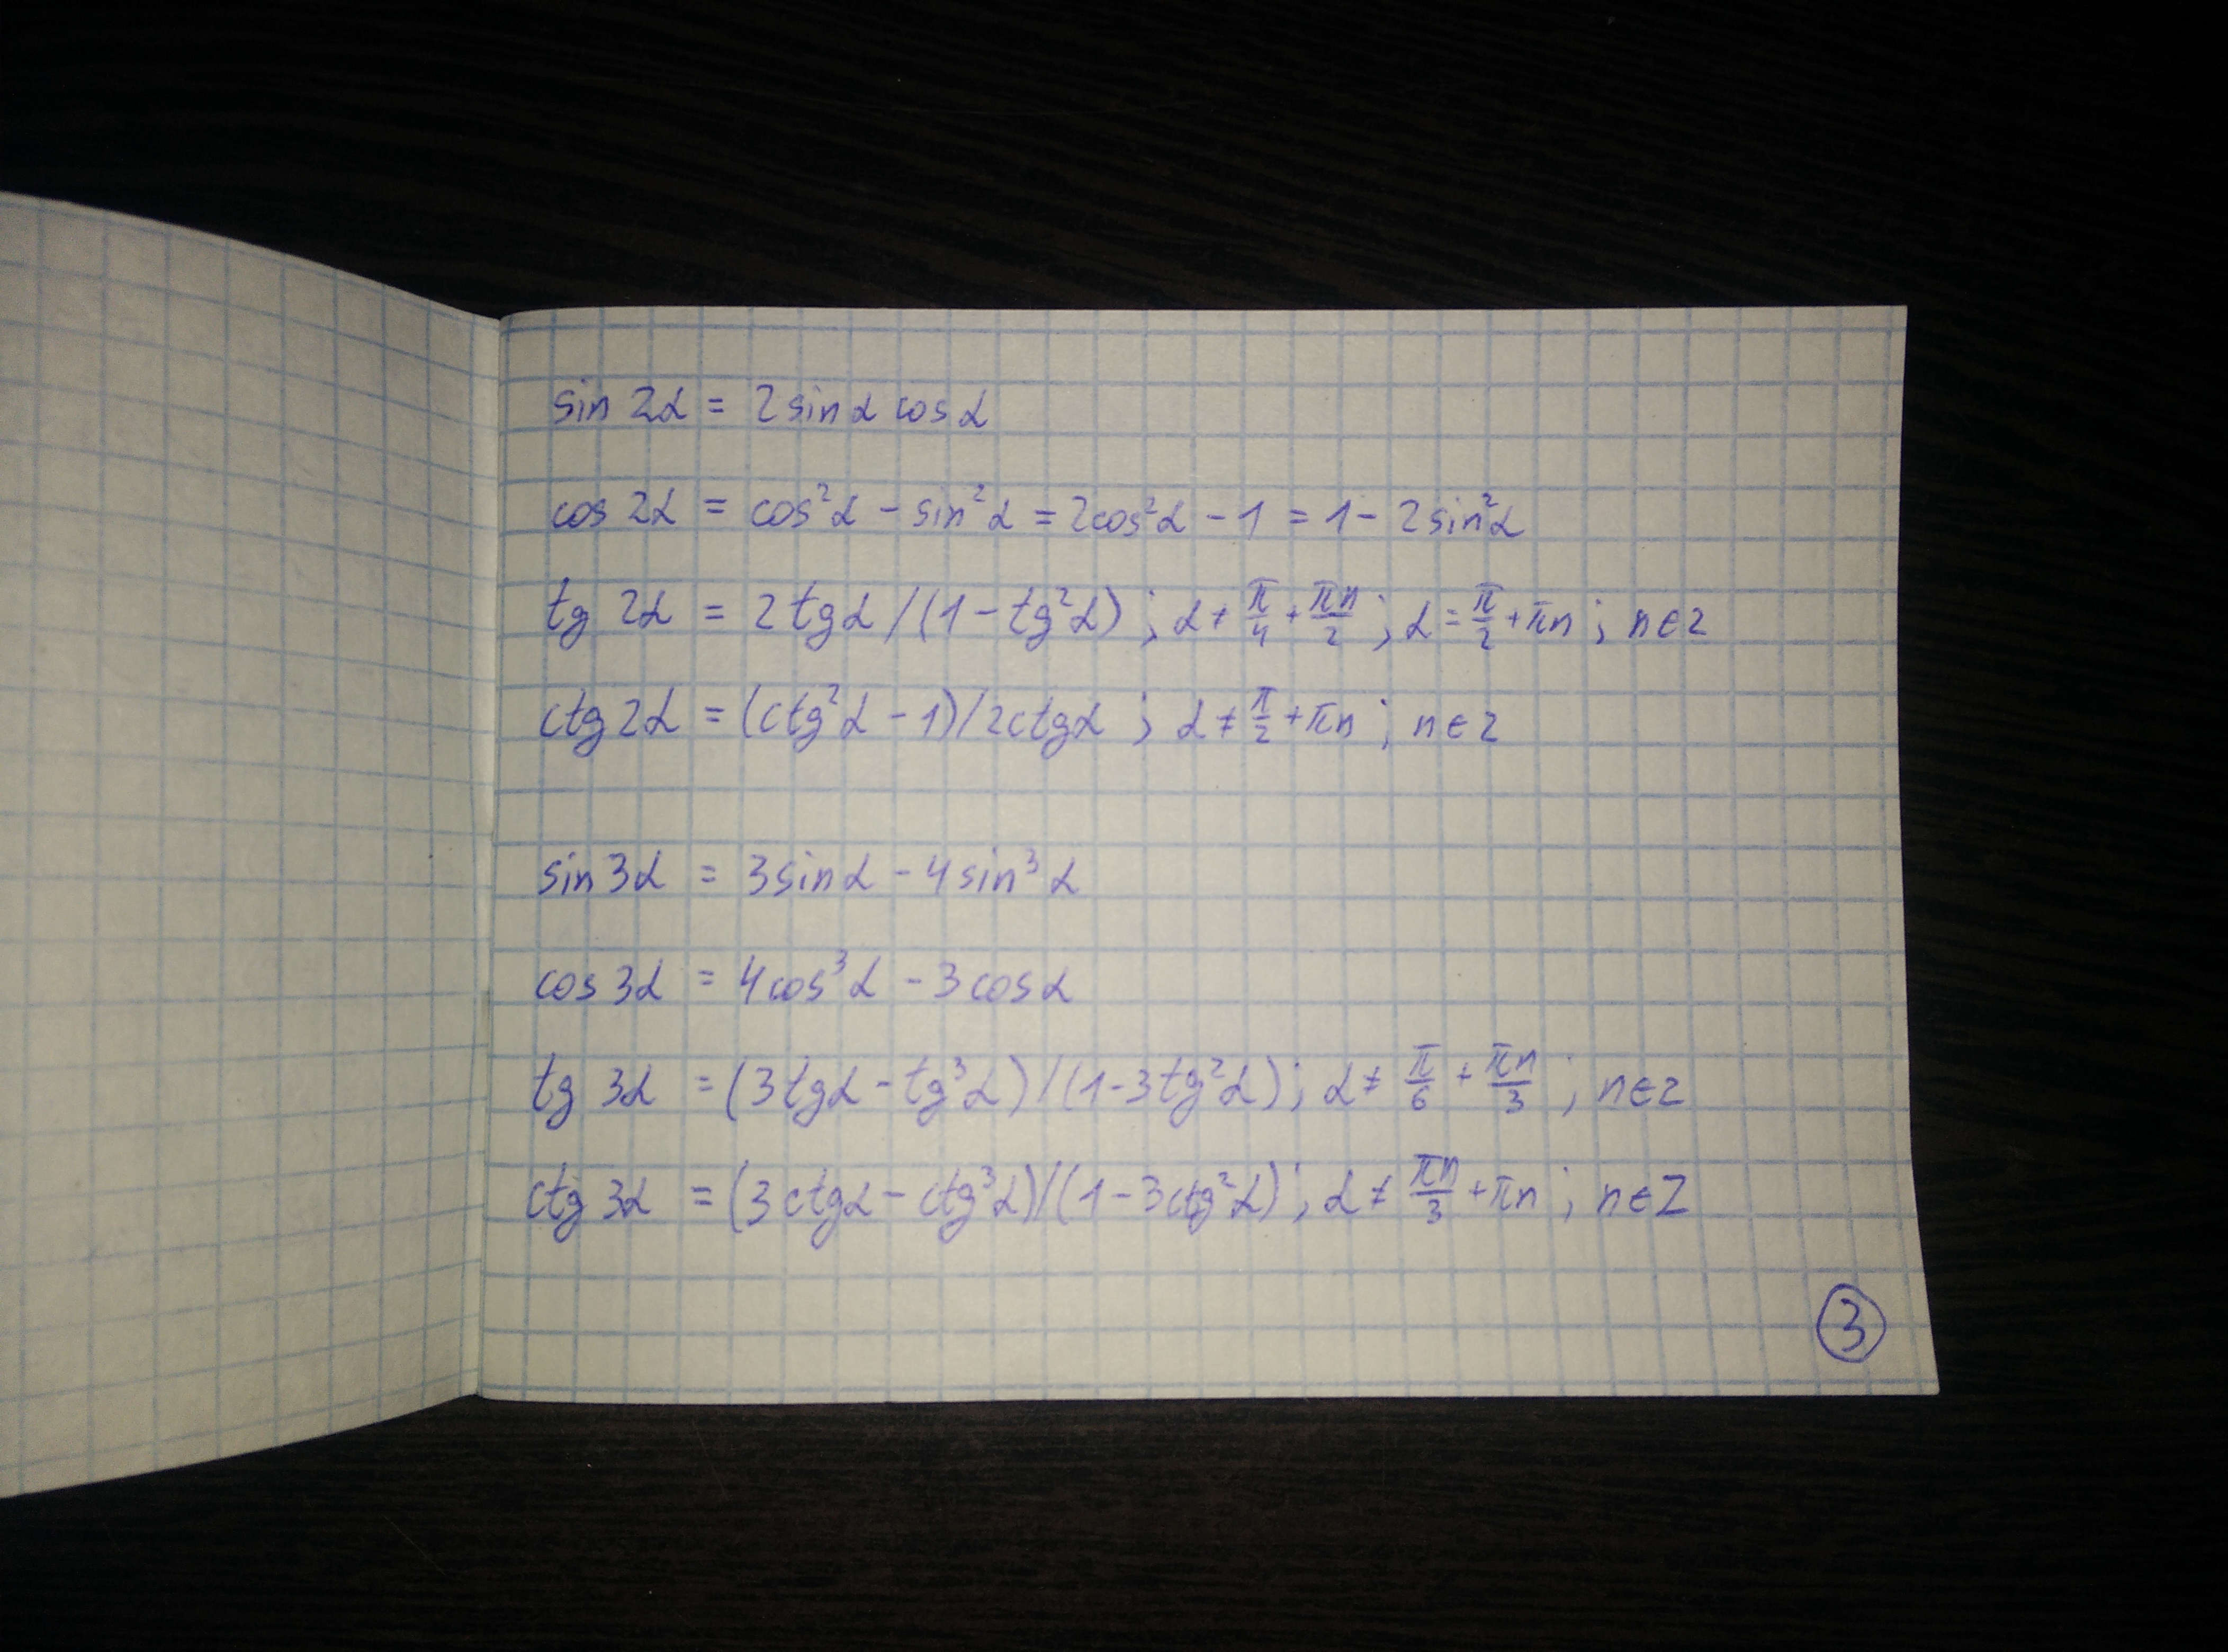 sin 2α = 2sinα cosα
cos 2α = cos²α - sin²α = 2cos²α - 1 = 1 - 2sin²α
tg 2α = 2tgα/(1-tg²α); α ≠ π/4 + πn/2; α = π/2 + πn; n∈z
ctg 2α = (ctg²α - 1)/2ctgα; α ≠ π/2 + πn; n∈z
sin 3α = 3sinα - 4sin³α
cos 3α = 4cos³α - 3cosα
tg 3α = (3tgα - tg³α)/(1-3tg²α); α ≠ π/6 + πn/3; n∈z
ctg 3α = (3ctgα - ctg³α)/(1-3ctg²α); α ≠ πn/3 + πn; n∈Z
3